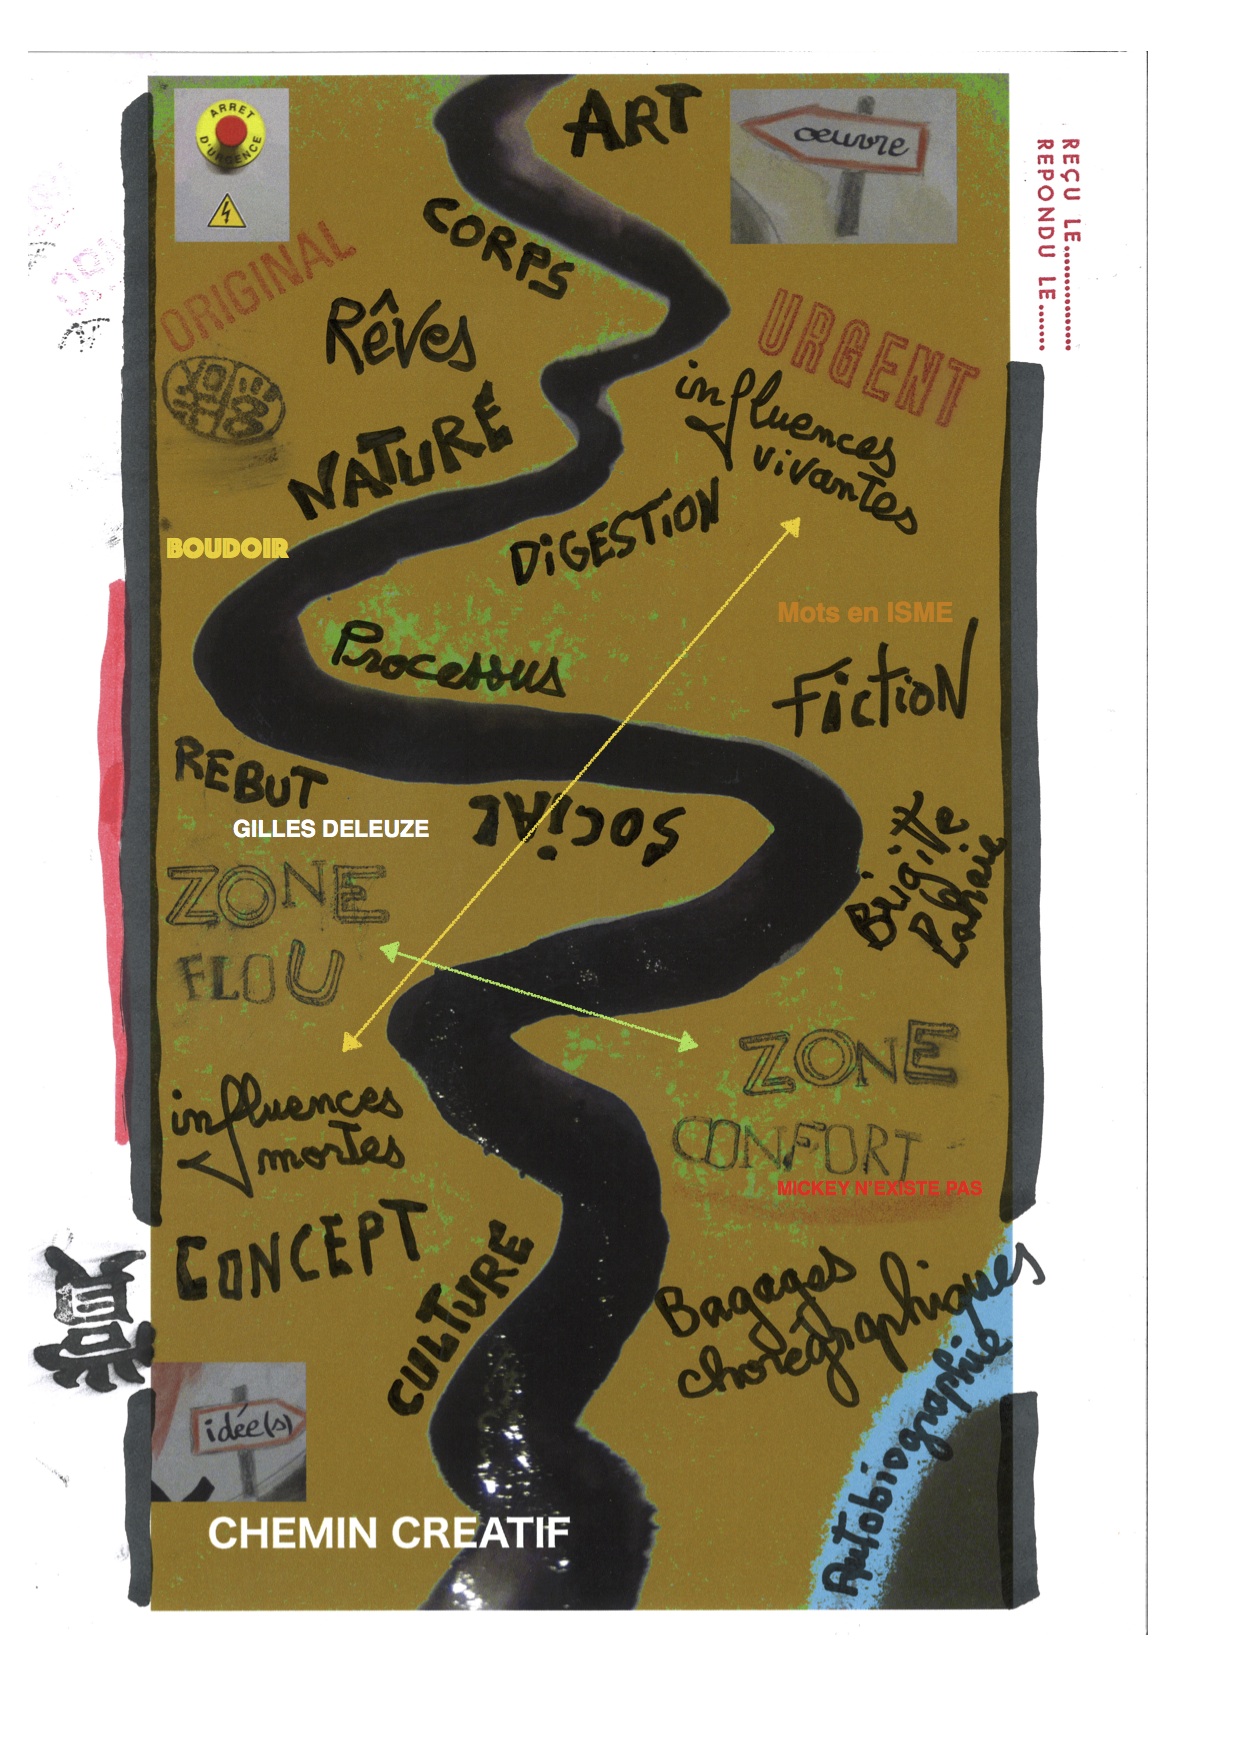 ARRET
D'URGENCE
ART
œuvre
REÇU LE
REPONDU LE
CORPS
ORIGINAL
Rêves
URGENT
influences
vivantes
NATURE
DiGESTiON
BOUDOIR
Mots en ISME
Processus
FictioN
REBUT
SOCiAL
GILLES DELEUZE
Brigitte
Lahaie
ZONE
FLOU
ZONE
CONFORT
MICKEY N'EXISTE PAS
influences
mortes
CONCEPT
CULTURE
Bagages
chorégraphiques
Autobiographie
idée(s)
CHEMIN CREATIF